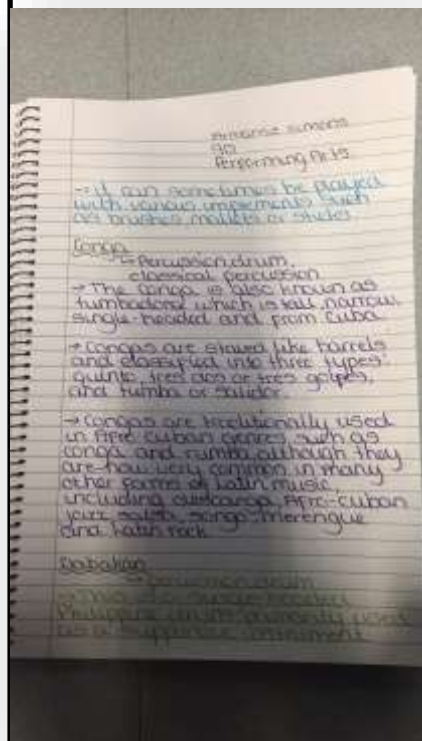 Simons
9D
Performing Arts
→ it can sometimes be played
with various implements such
as brushes, mallets or sticks
Conga
↳ Percussion drum,
classical percussion
→ The conga is also known as
tumbadora which is tall, narrow
single-headed and from Cuba
→ Congas are staved like barrels
and classified into three types:
quinto, tres dos or tres golpes,
and tumba or salidor.
→ Congas are traditionally used
in Afro cuban genres such as
conga and rumba, although they
are now very common in many
other forms of Latin music,
including Afro-Cuban
jazz, salsa, songo, merengue
and Latin rock
Dabakan
↳ percussion drum
→ This is a single headed
Philippine drum, primarily used
as a supportive instrument